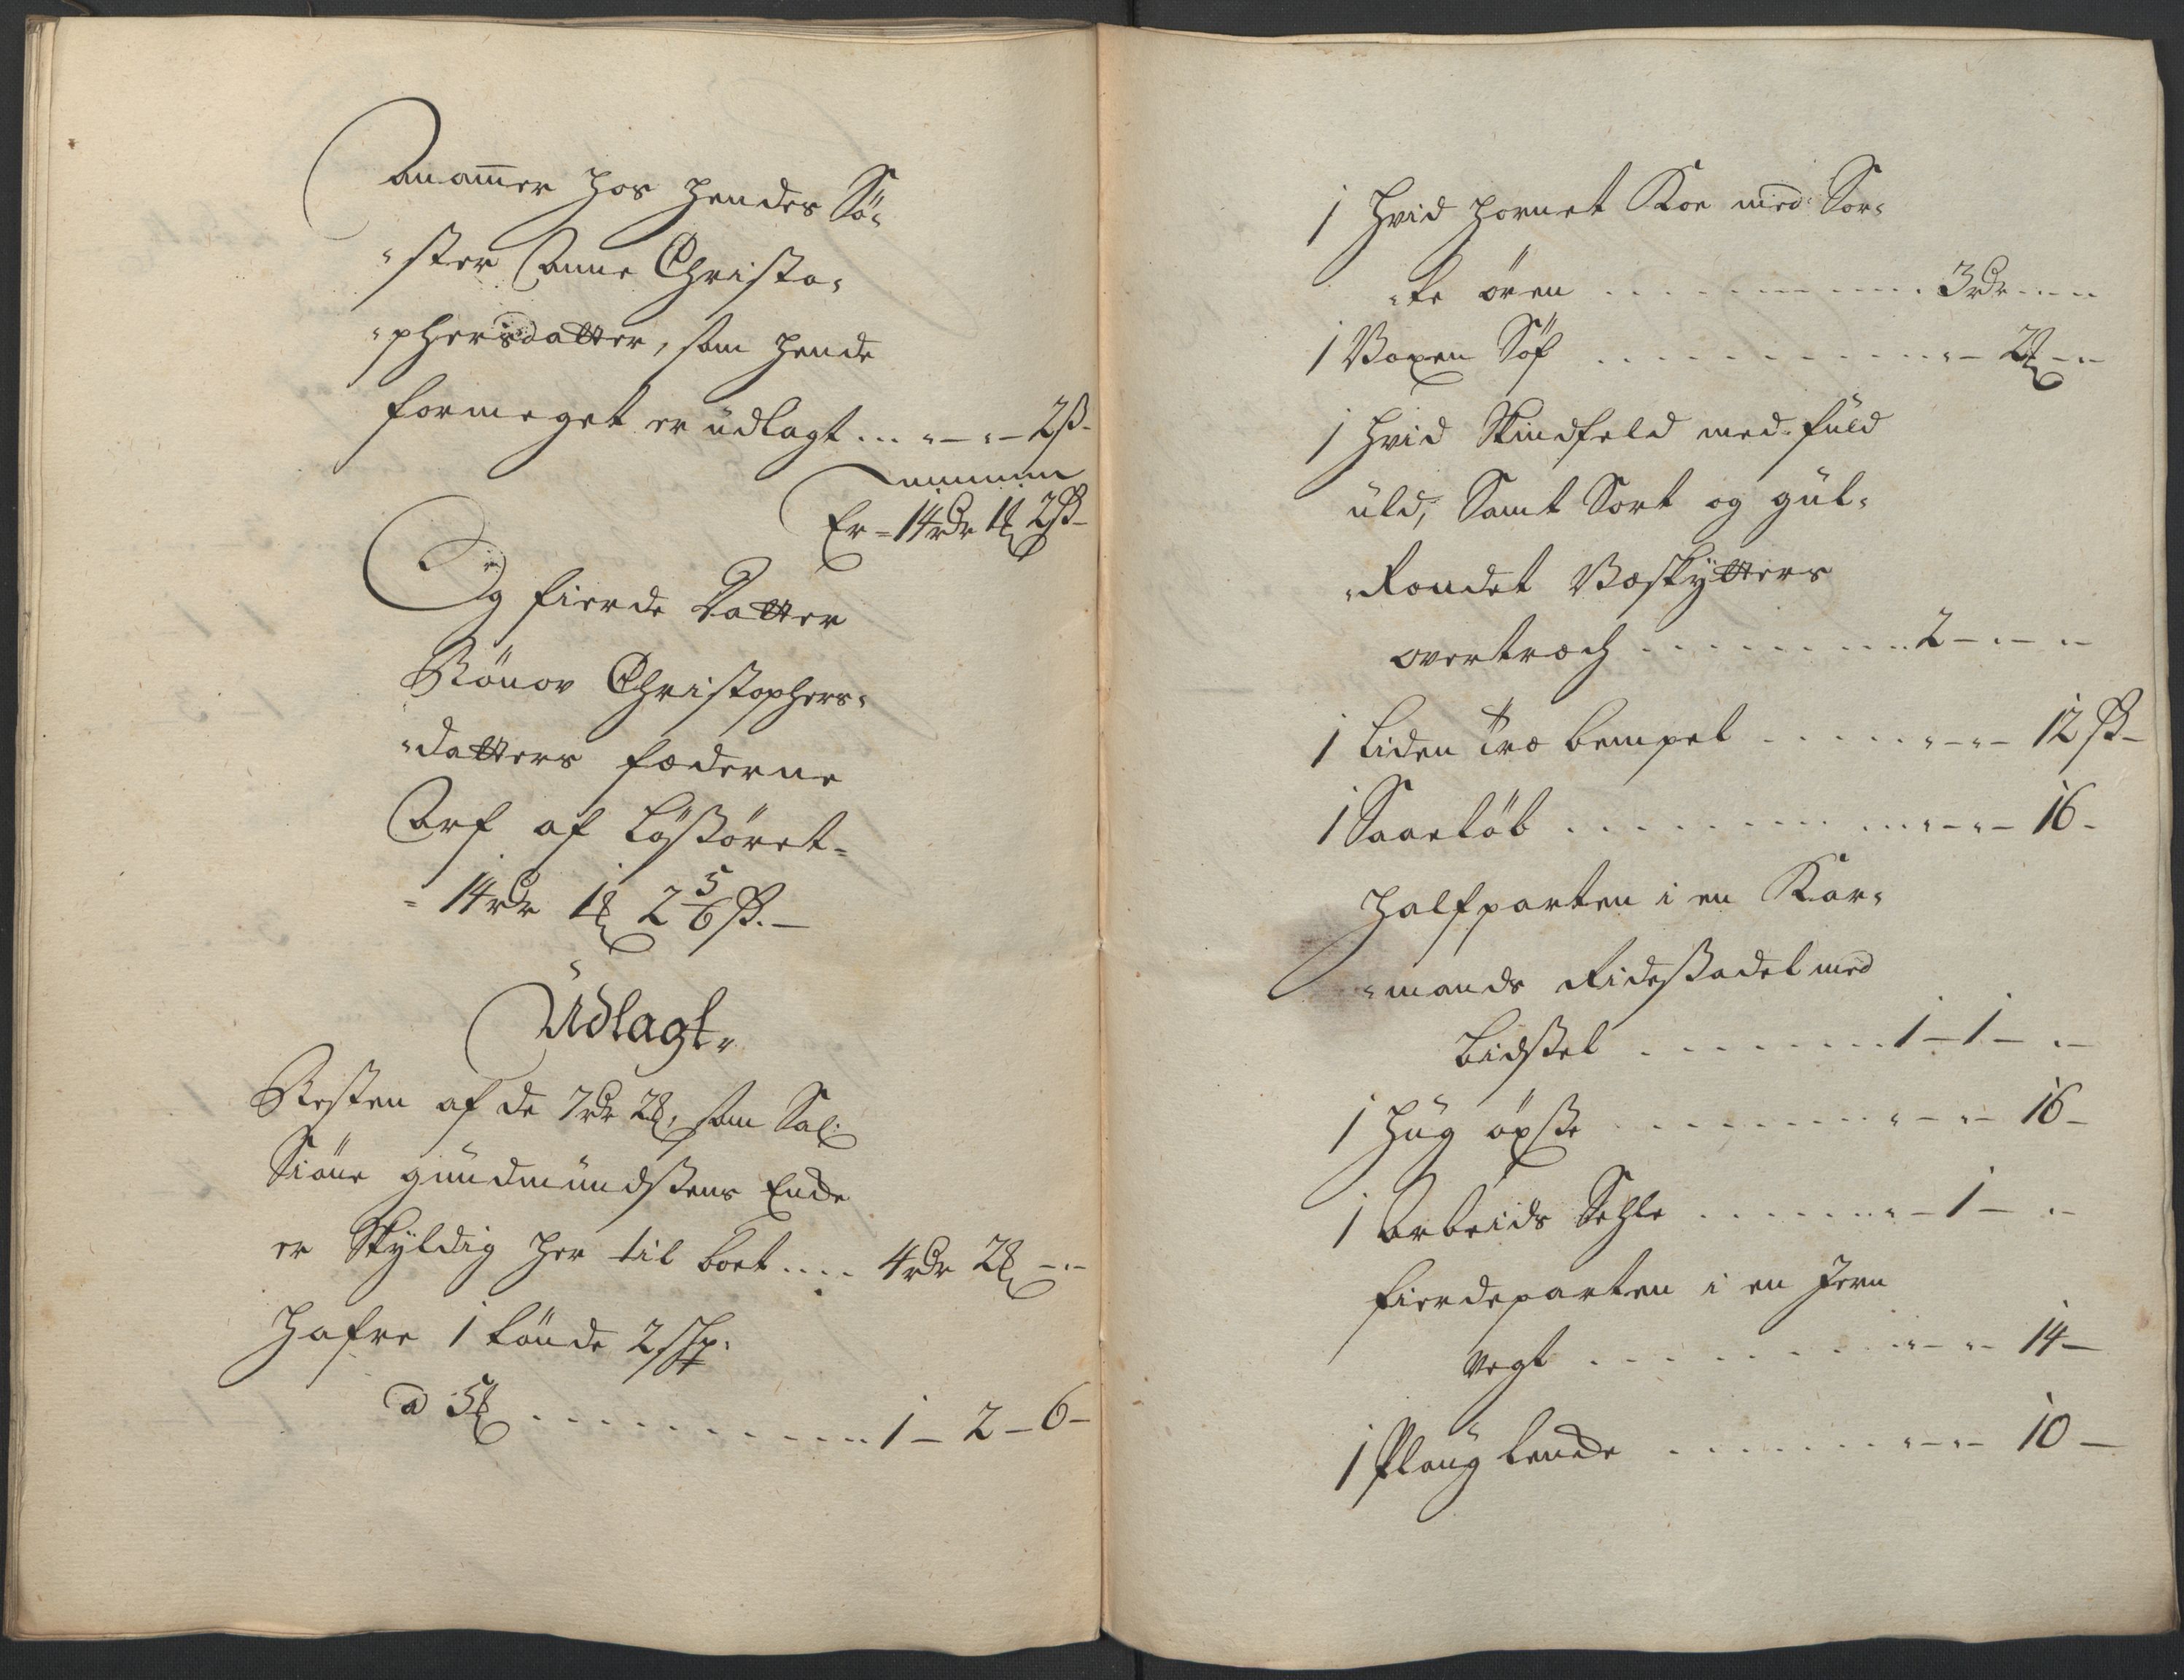 Anammer hos hendes Sö-
-ster Anne Christo-
-phersdatter, som hende
formeget er üdlagt ... " - " - 2 ß -
Er = 14 rdr 1 ℳ 2 ß -
Og fierde Datter
Rönov Christophers-
-datters fæderne
Arf af Lößöret =
= 14 rdr 1 ℳ 2 5/6 ß. -
Üdlagt,
Resten af de 7 rdr 2 ℳ, som Sal:
Siöue gündmündßens Ende
er Skyldig her til boet .... 4 rdr 2 ℳ - " -
Hafre 1 tönde 2 shp:
a 5 ℳ ............ 1 - 2 - 6 -
1 hvid hornet Koe med Sor-
-te ören ............ 3 rdr - " - "
1 Voxen Söf ............ " - 2 ℳ - "
1 hvid Skindfeld med füld
üld, Samt Sort og gül-
-Randet Væskÿtters
overtræch ......... 2 - " - "
1 Liden træ bempel ...... " - " - 12 ß -
1 Saaeløb ............ " - " - 16 -
Halfparten i en Kar-
-mands Rideßadel med
bidßel ......... 1 - 1 - " -
1 Hüg öxße ......... " - " - 16 -
1 Arbeids Sehle ....... " - 1 - "
fierdeparten i en Jern
vegt ......... " - " - 14 -
1 Plaug lende ......... " - " - 10 -